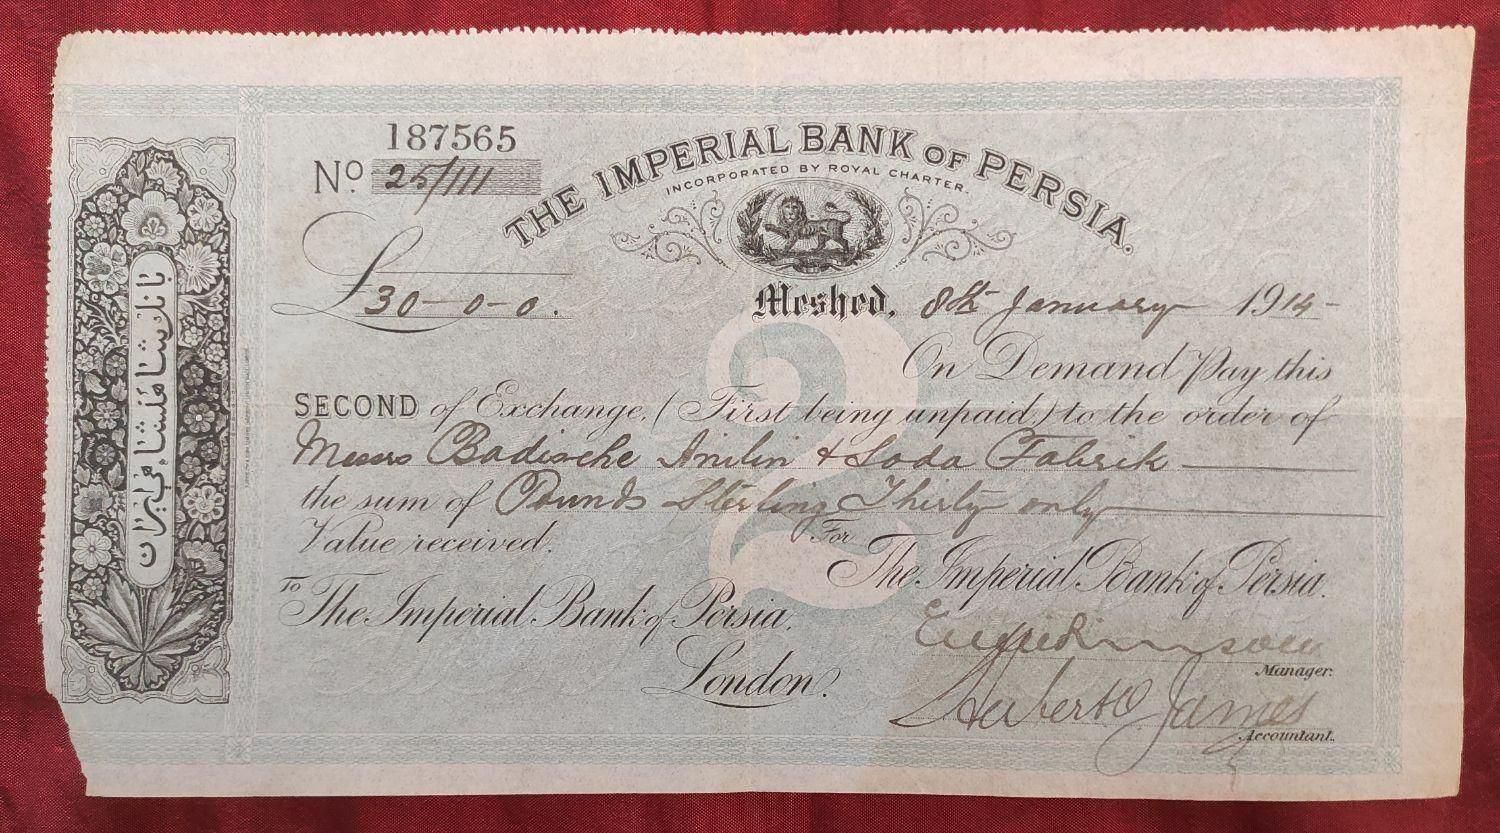 187565
No. 25/111
THE IMPERIAL BANK OF PERSIA.
INCORPORATED BY ROYAL CHARTER.
£30-0-0.
Meshed, 8th January 1914-
On Demand Pay this
SECOND of Exchange, (First being unpaid) to the order of
Messrs Badische Anilin & Soda Fabrik
the sum of Pounds Sterling Thirty only
Value received.
For
The Imperial Bank of Persia.
To
The Imperial Bank of Persia,
London.
Manager.
Herbert C James
Accountant.
2
بانك شاهنشاهی ایران